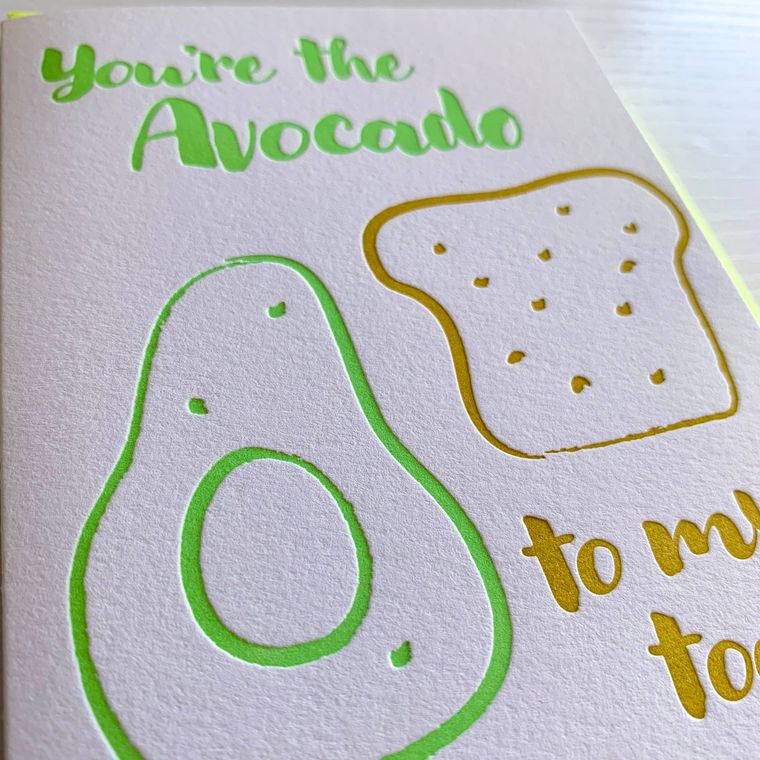 You're the
Avocado
to my